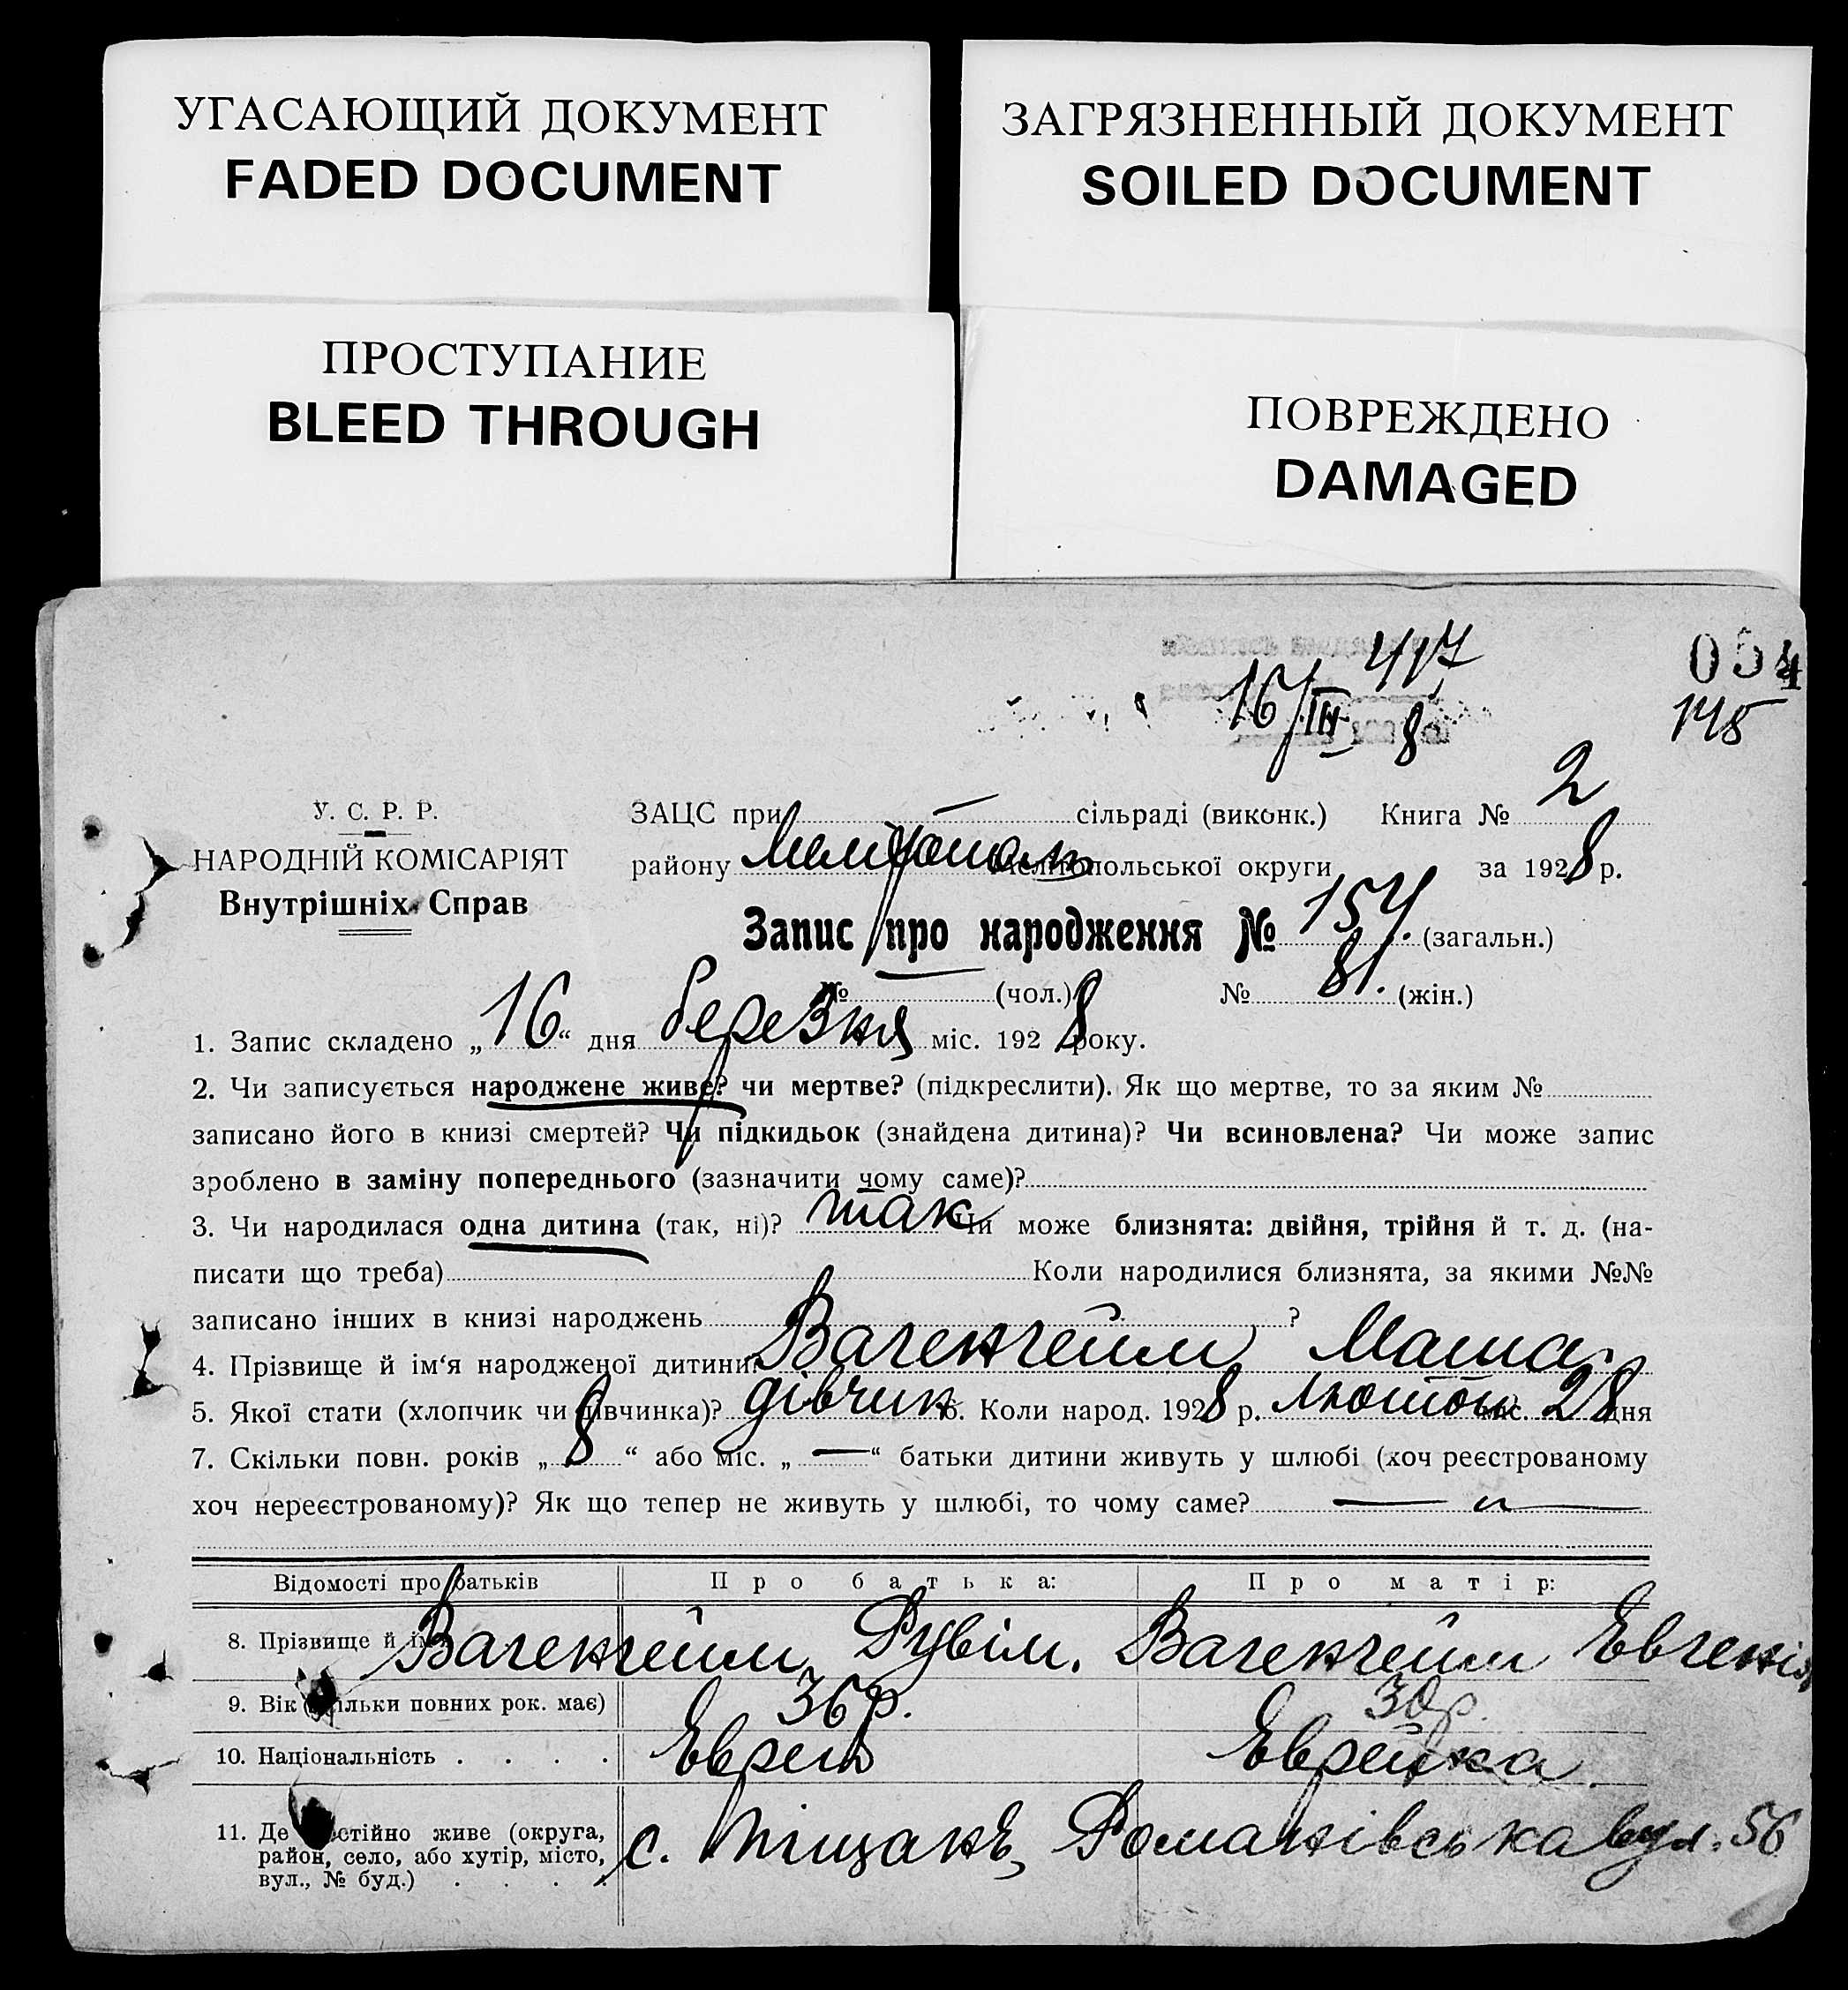 УГАСАЮЩИЙ ДОКУМЕНТ
FADED DOCUMENT
ЗАГРЯЗНЕННЫЙ ДОКУМЕНТ
SOILED DOCUMENT
ПРОСТУПАНИЕ
BLEED THROUGH
ПОВРЕЖДЕНО
DAMAGED
417
16/III 8
054
145
У. С. Р. Р.
НАРОДНІЙ КОМІСАРІЯТ
Внутрішніх Справ
ЗАЦС при — сільраді (виконк.) Книга № 2
району Мелітополь Мелітопольської округи за 1928 р.
Запис про народження № 154. (загальн.)
№ (чол.) № 81. (жін.)
1. Запис складено „16“ дня березня міс. 1928 року.
2. Чи записується народжене живе? чи мертве? (підкреслити). Як що мертве, то за яким №
записано його в книзі смертей? Чи підкидьок (знайдена дитина)? Чи всиновлена? Чи може запис
зроблено в заміну попереднього (зазначити чому саме)?
3. Чи народилася одна дитина (так, ні)? так Чи може близнята: двійня, трійня й т. д. (на-
писати що треба) Коли народилися близнята, за якими №№
записано інших в книзі народжень ?
4. Прізвище й ім‘я народженої дитини: Вагенгейм Маша
5. Якої стати (хлопчик чи дівчинка)? дівчин 6. Коли народ. 1928 р. лютого міс. 28 дня
7. Скільки повн. років „8“ або міс. „—“ батьки дитини живуть у шлюбі (хоч реєстрованому
хоч нереєстрованому)? Як що тепер не живуть у шлюбі, то чому саме? — „ —
Відомості про батьків Про батька: Про матір:
8. Прізвище й ім'я Вагенгейм Рувім. Вагенгейм Евгенія
9. Вік (скільки повних рок. має) 36 р. 30 р.
10. Національність . . . . Еврей Еврейка
11. Де постійно живе (округа,
район, село, або хутір, місто,
вул., № буд.) . . . .
с. Піщане, Романівська вул. 56